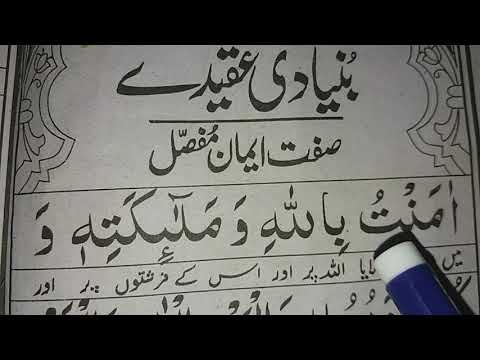 بُنیادی عقیدے
صفت ایمان مُفصّل
اٰمَنْتُ بِاللّٰهِ وَمَلٰٓئِكَتِهٖ وَ
میں اللہ پر اور اس کے فرشتوں پر اور